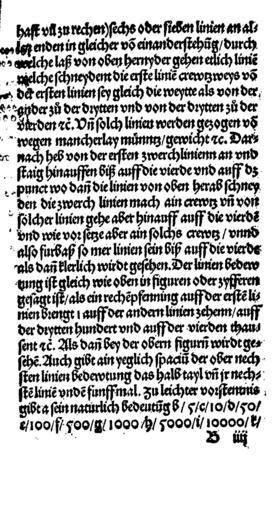 hast vñ zu rechen) sechs oder sieben linien an al⸗
len enden in gleicher võ einanderstehũg / durch
welche laß von oben hernyder gehen etlich linie
welche schneydent die erste linie crewtzweys võ
der ersten linien sey gleich die weytte als von der
ander zů der drytten vnd von der drytten zů der
vierden ⁊c. Vñ solch linien werden gezogen võ
wegen mancherlay müntz / gewicht ⁊c. Dar⸗
nach heb von der ersten zwerchlinienn an vnd
staig hinauffen biß auff die vierde vnd auff dẽ
punct wo dañ die linien von oben herab schney
den die zwerch linien mach ain crewtz vñ von
solcher linien gehe aber hinauff auff die vierdẽ
vnd wie vor setze aber ain solchs crewtz / vnnd
also furbaß so mer linien sein biß auff die vierde
als dañ klerlich wirdt gesehen. Der linien bedew
tung ist gleich wie oben in figuren oder zyfferen
gesagt ist / als ein rechẽpfenning auff der erstẽ li⸗
nien brengt 1 auff der andern linien zehenn / auff
der drytten hundert vnd auff der vierden thau⸗
sent ⁊c. Als dañ bey der obern figurñ wirdt ge⸗
sehẽ. Auch gibt ain yeglich spaciũ der ober nech
sten linien bedewtung das halb tayl vñ jr nech⸗
stẽ linie vndẽ funffmal. Zu leichter vorstentnis
gibt a sein natürlich bedeutũg b / 5 / c / 10 / d / 50 /
e / 100 / f / 500 / g / 1000 / h / 5000 / i / 10000 / k /
B iiij